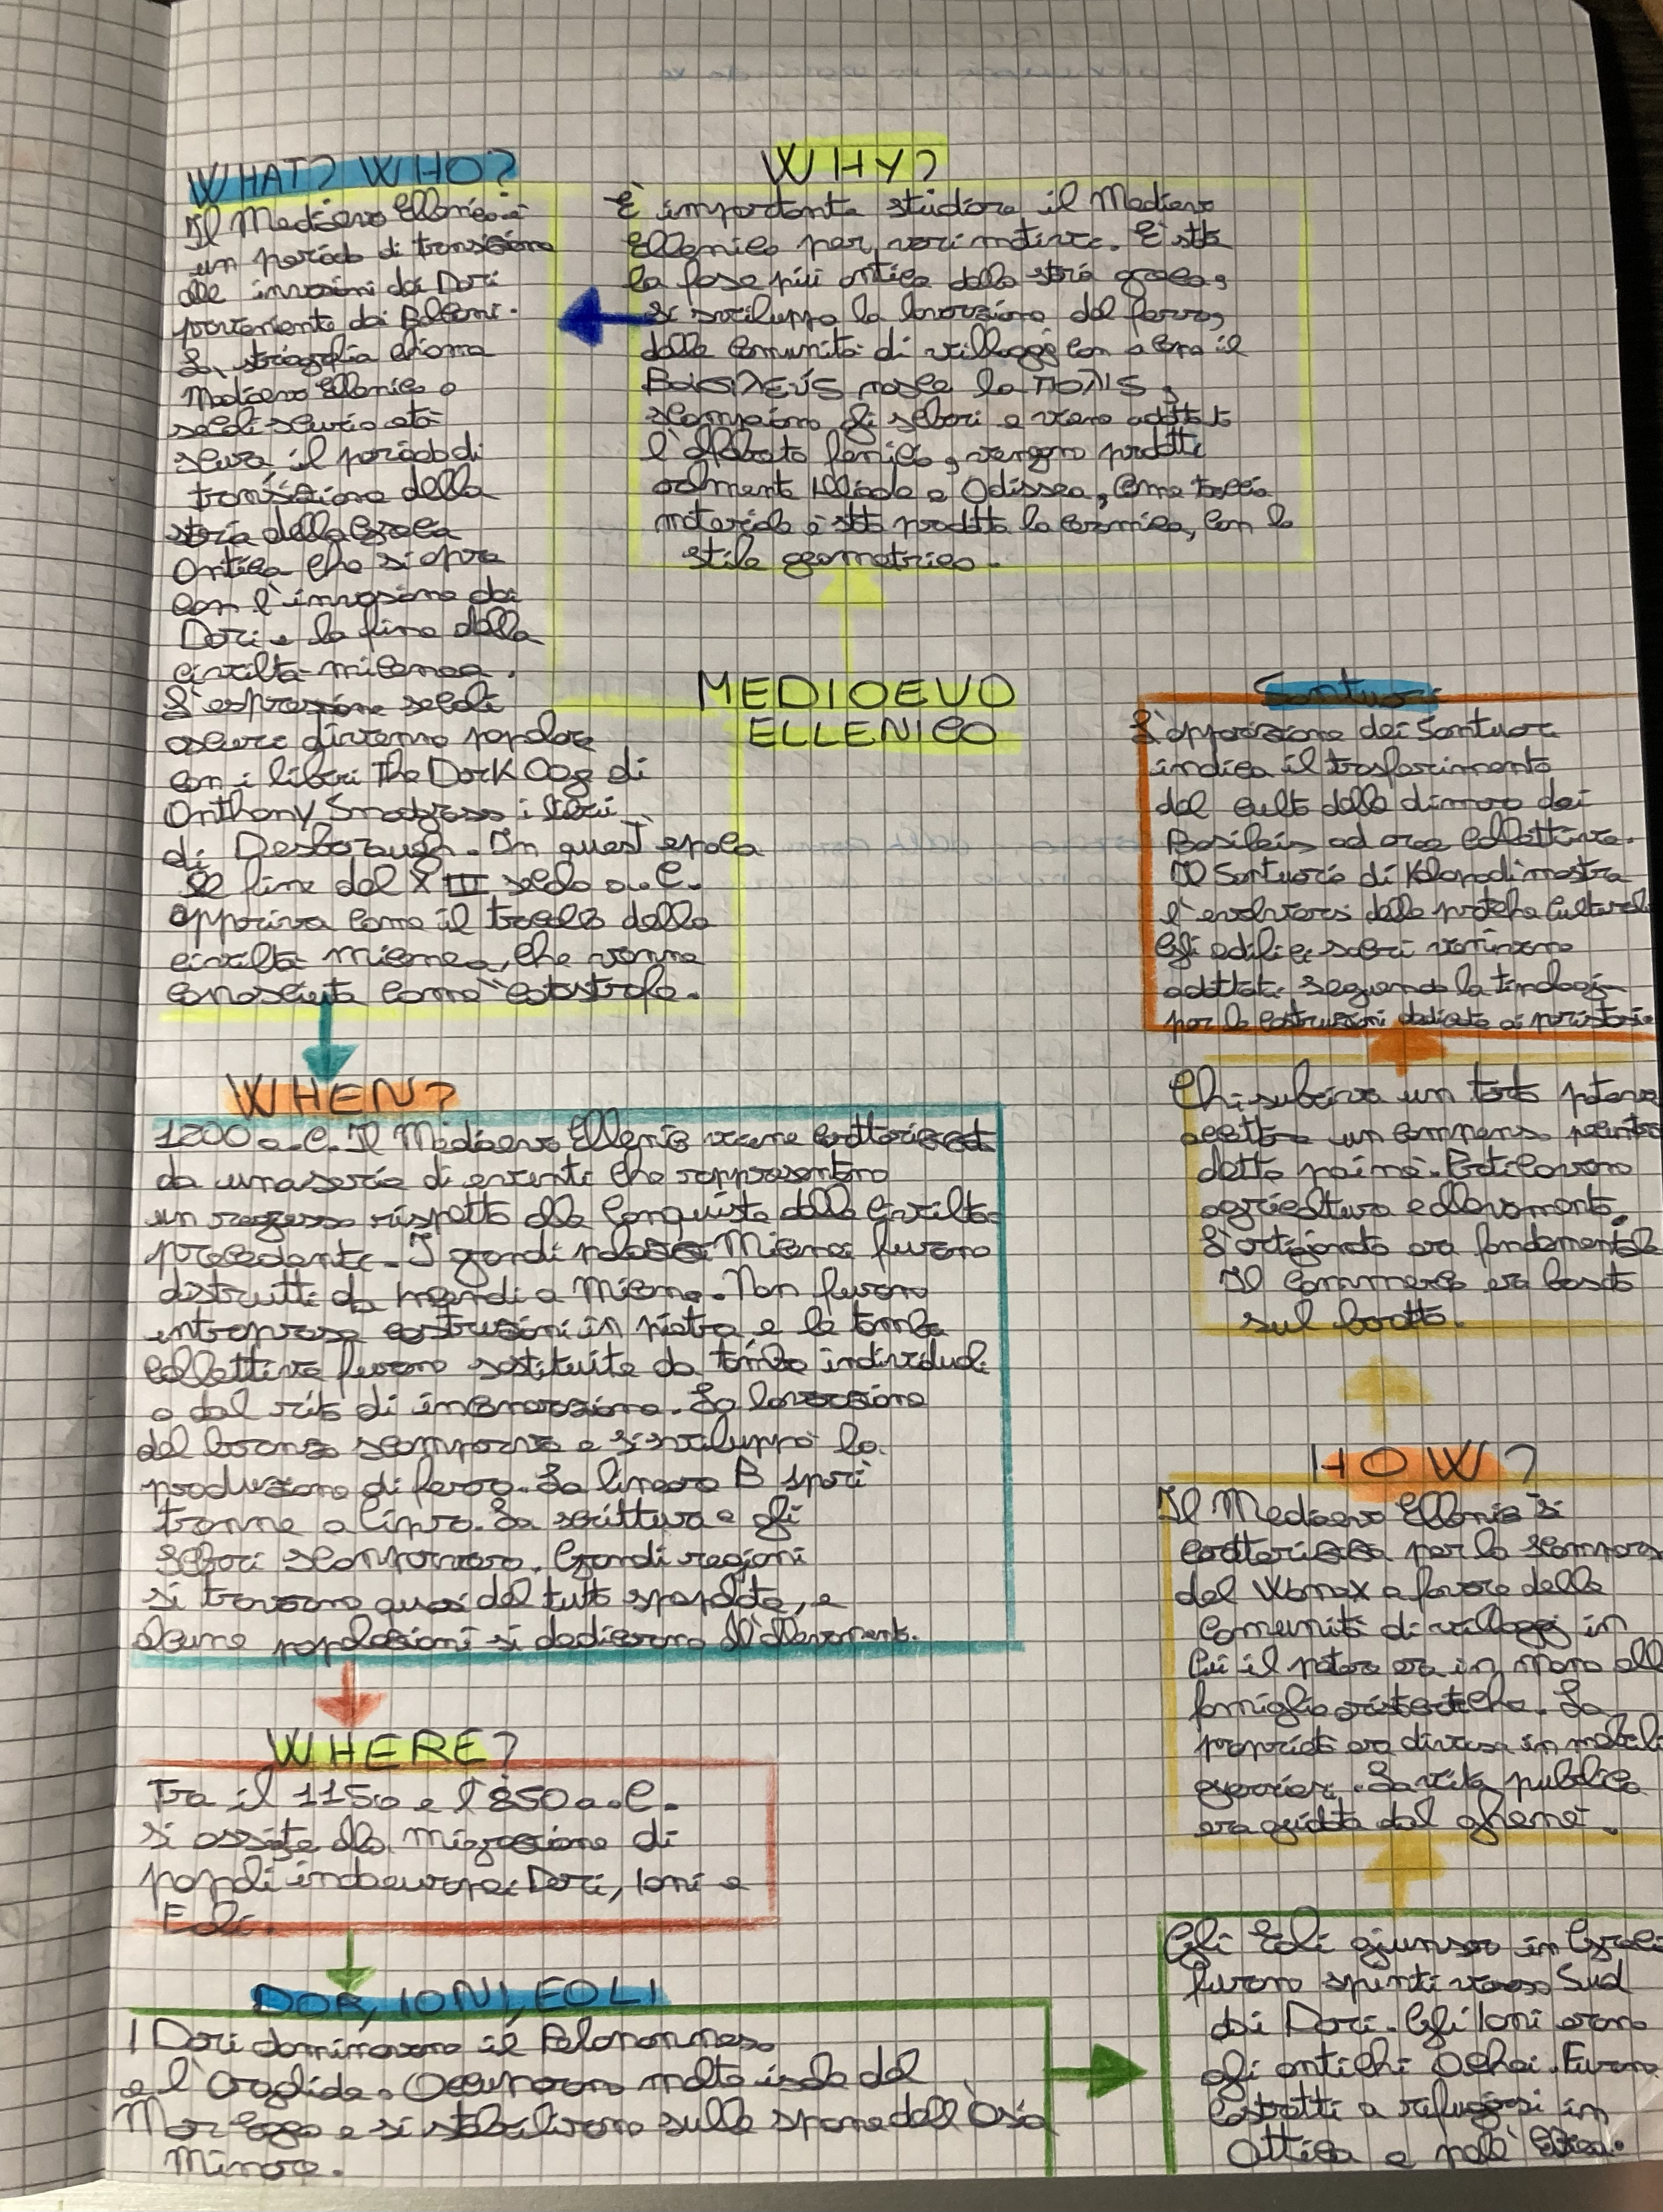 WHAT? WHO?
Il Medioevo Ellenico è
un periodo di transizione
alle invasioni dei Dori
proveniente dai Balcani.
La storiografia chiama
Medioevo Ellenico o
secoli scuri o età
scura il periodo di
transizione della
storia della Grecia
Antica che si apre
con l'invasione dei
Dori e la fine della
civiltà micenea.
L'espressione secoli
oscuri divenne popolare
con i libri The Dark Age di
Anthony Snodgrass i libri
di Desborough. In quest'epoca
la fine del XIII secolo a.C.
appariva come il tracollo della
civiltà micenea, che venne
conosciuta come "catastrofe.
WHY?
È importante studiare il Medioevo
Ellenico per vari motivi. È stata
la fase più antica della storia greca,
si sviluppa la lavorazione del ferro,
dalle comunità di villaggi con a capo il
nasce la πολις,
scompaiono gli scribi e viene adottato
l'alfabeto fenicio, vengono prodotti
oralmente Iliade e Odissea, come traccia
materiale è stata prodotta la ceramica, con lo
stile geometrico.
MEDIOEVO
ELLENICO
Santuari
L'apparizione dei Santuari
indica il trasferimento
del culto dalle dimore dei
Basileis ad aree collettive.
Il Santuario di Kalapodi mostra
l'evolversi delle pratiche cultuali
Gli edifici sacri venivano
adottati seguendo la
per le costruzioni dedicate ai
Chi subiva un torto poteva
accettare un compenso
detto poinè. Praticavano
agricoltura e allevamento.
L'artigianato era fondamentale
Il commercio era basato
sul baratto.
WHEN?
1200 a.C. Il Medioevo Ellenico viene caratterizzato
da una serie di eventi che rappresentano
un regresso rispetto alle conquiste della civiltà
precedente. I grandi palazzi Micenei furono
distrutti da incendi a Micene. Non furono
intraprese costruzioni in pietra e le tombe
collettive furono sostituite da tombe individuali
e dal rito di incenerazione. La lavorazione
del bronzo scompariva e si sviluppò la
produzione di ferro. La lineare B sparì
tranne a Cipro. La scrittura e gli
scribi scomparvero. Grandi regioni
si trovarono quasi del tutto spopolate, e
alcune popolazioni si dedicarono all'allevamento.
HOW?
Il Medioevo Ellenico si
caratterizza per la scomparsa
del Wanax a favore delle
comunità di villaggi in
cui il potere era in mano alle
famiglie aristocratiche. La
proprietà era divisa in nobili
guerrieri. La vita pubblica
era guidata dal ghenè.
WHERE?
Tra il 1150 e l'850 a.C.
si assiste alla migrazione di
popoli indoeuropei Dori, Ioni e
Eoli.
DORI, IONI, EOLI
I Dori dominarono il Peloponneso
e l'Argolide. Occuparono molte isole del
Mar Egeo e si stabilirono sulle sponde dell'Asia
Minore.
Gli Eoli giunsero in Grecia
furono spinti verso Sud
dai Dori. Gli Ioni erano
gli antichi Achei. Furono
costretti a rifugiarsi in
Attica e nell'